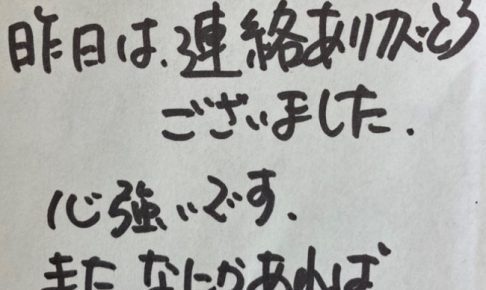 昨日は、連絡ありがとう
ございました.
心強いです.
また なにかあれば